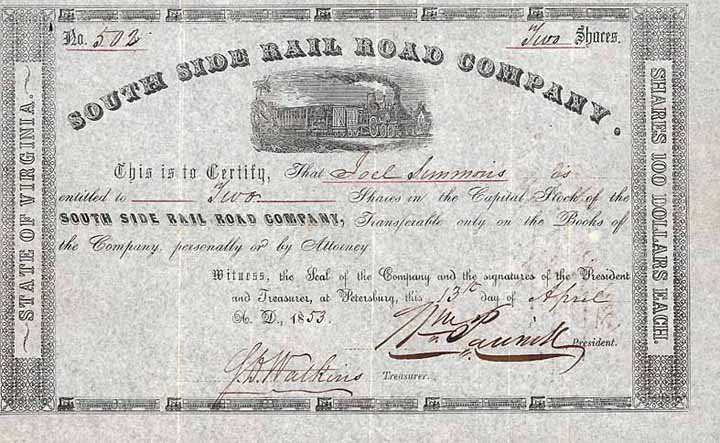 No. 502. Two Shares.
SOUTH SIDE RAIL ROAD COMPANY.
STATE OF VIRGINIA.
This is to Certify, That Joel Simmons is
entitled to Two Shares in the Capital Stock of the
SOUTH SIDE RAIL ROAD COMPANY, Transferable only on the Books of
the Company, personally or by Attorney
Witness, the Seal of the Company and the signatures of the President
and Treasurer, at Petersburg, this 13th day of April
A. D., 1853.
Wm President.
Watkins Treasurer.
SHARES 100 DOLLARS EACH.